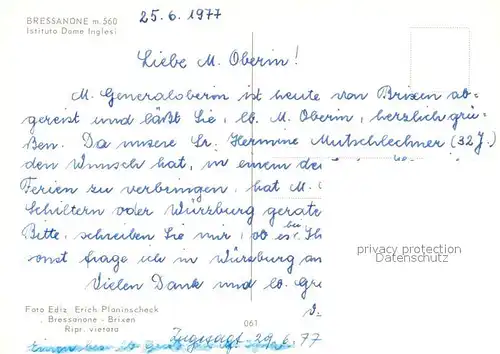 BRESSANONE m. 560
Istituto Dame Inglesi
25. 6. 1977
Liebe M. Oberin!
M. Generaloberin ist heute von Brixen ab-
gereist und läßt Sie, lb. M. Oberin, herzlich grü-
ßen. Da unsere Sr. Hermine Mutschlechner (32 J.)
den Wunsch hat, in einem de
Ferien zu verbringen, hat M.
Schiltern oder Würzburg gerate
Bitte, schreiben Sie mir, ob es bei Ih
onst frage ich in Würzburg an
Vielen Dank und lb. Grü
privacy protection
Datenschutz
Foto Ediz. Erich Planinscheck
Bressanone - Brixen
Ripr. vietata
061
Zugesagt 29. 6. 77